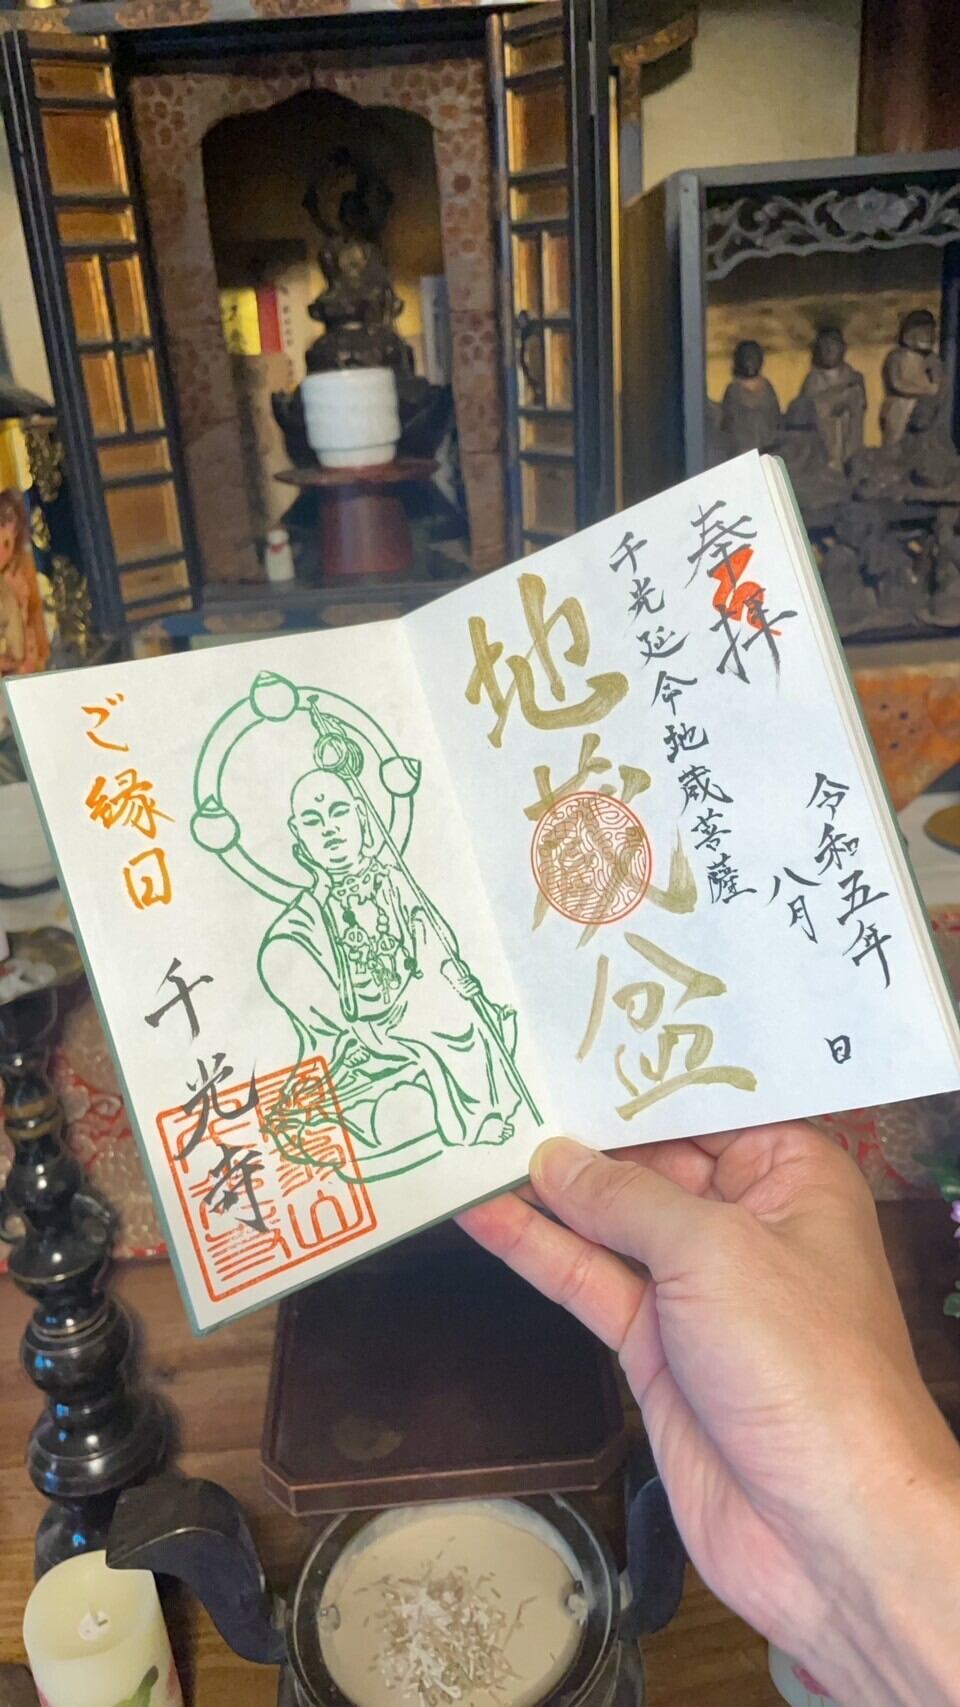 奉拝
千光延命地蔵菩薩
地蔵盆
令和五年
八月
日
ご縁日
千光寺